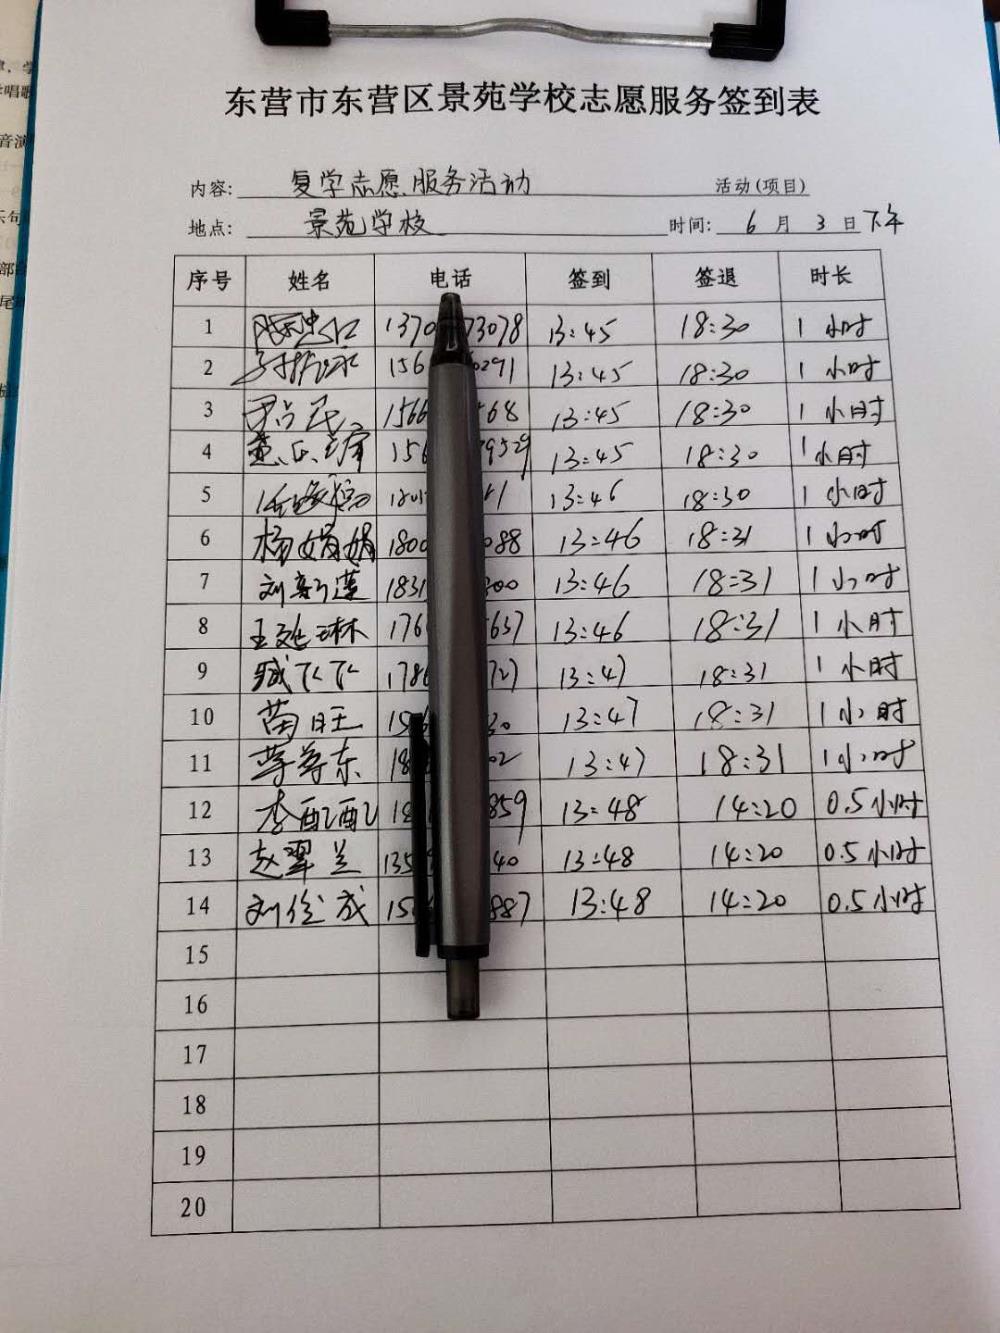 东营市东营区景苑学校志愿服务签到表
内容: 复学志愿服务活动 活动(项目)
地点: 景苑学校 时间: 6 月 3 日下午
序号 姓名 电话 签到 签退 时长
1 1370 73078 13:45 18:30 1小时
2 156 0291 13:45 18:30 1小时
3 1566 568 13:45 18:30 1小时
4 156 79529 13:45 18:30 1小时
5 13:46 18:30 1小时
6 杨娟娟 1800 088 13:46 18:31 1小时
7 刘新莲 1831 300 13:46 18:31 1小时
8 176 5657 13:46 18:31 1小时
9 臧下下 1786 727 13:47 18:31 1小时
10 苗旺 30 13:47 18:31 1小时
11 18 02 13:47 18:31 1小时
12 李配配 18 859 13:48 14:20 0.5小时
13 赵翠兰 135 40 13:48 14:20 0.5小时
14 15 887 13:48 14:20 0.5小时
15
16
17
18
19
20